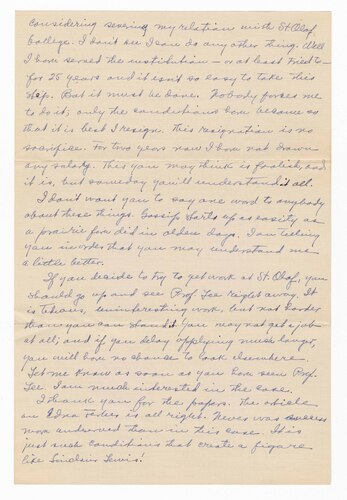 considering severing my relation with St. Olaf
College. I don't see I can do any other thing. Well
I have served the institution – or at least tried to –
for 25 years and it isn't so easy to take this
step. But it must be done. Nobody forces me
to do it; only the conditions have become so
that it is best I resign. This resignation is no
sacrifice. For two years now I have not drawn
any salary. This you may think is foolish, and
it is, but someday you'll understand it all.
I don't want you to say one word to anybody
about these things. Gossip starts up as easily as
a prairie fire did in olden days. I am telling
you in order that you may understand me
a little better.
If you decide to try to get work at St. Olaf, you
should go up and see Prof. Lee right away. It
is tedious, uninteresting work, but not harder
than you can stand it. You may not get a job
at all; and if you delay applying much longer,
you will have no chance to look elsewhere.
Let me know as soon as you have seen Prof.
Lee. I am much interested in the case.
I thank you for the papers. The article
on Edna Ferber is all right. Never was success
more undeserved than in this case. It is
just such conditions that create a figure
like Sinclair Lewis!